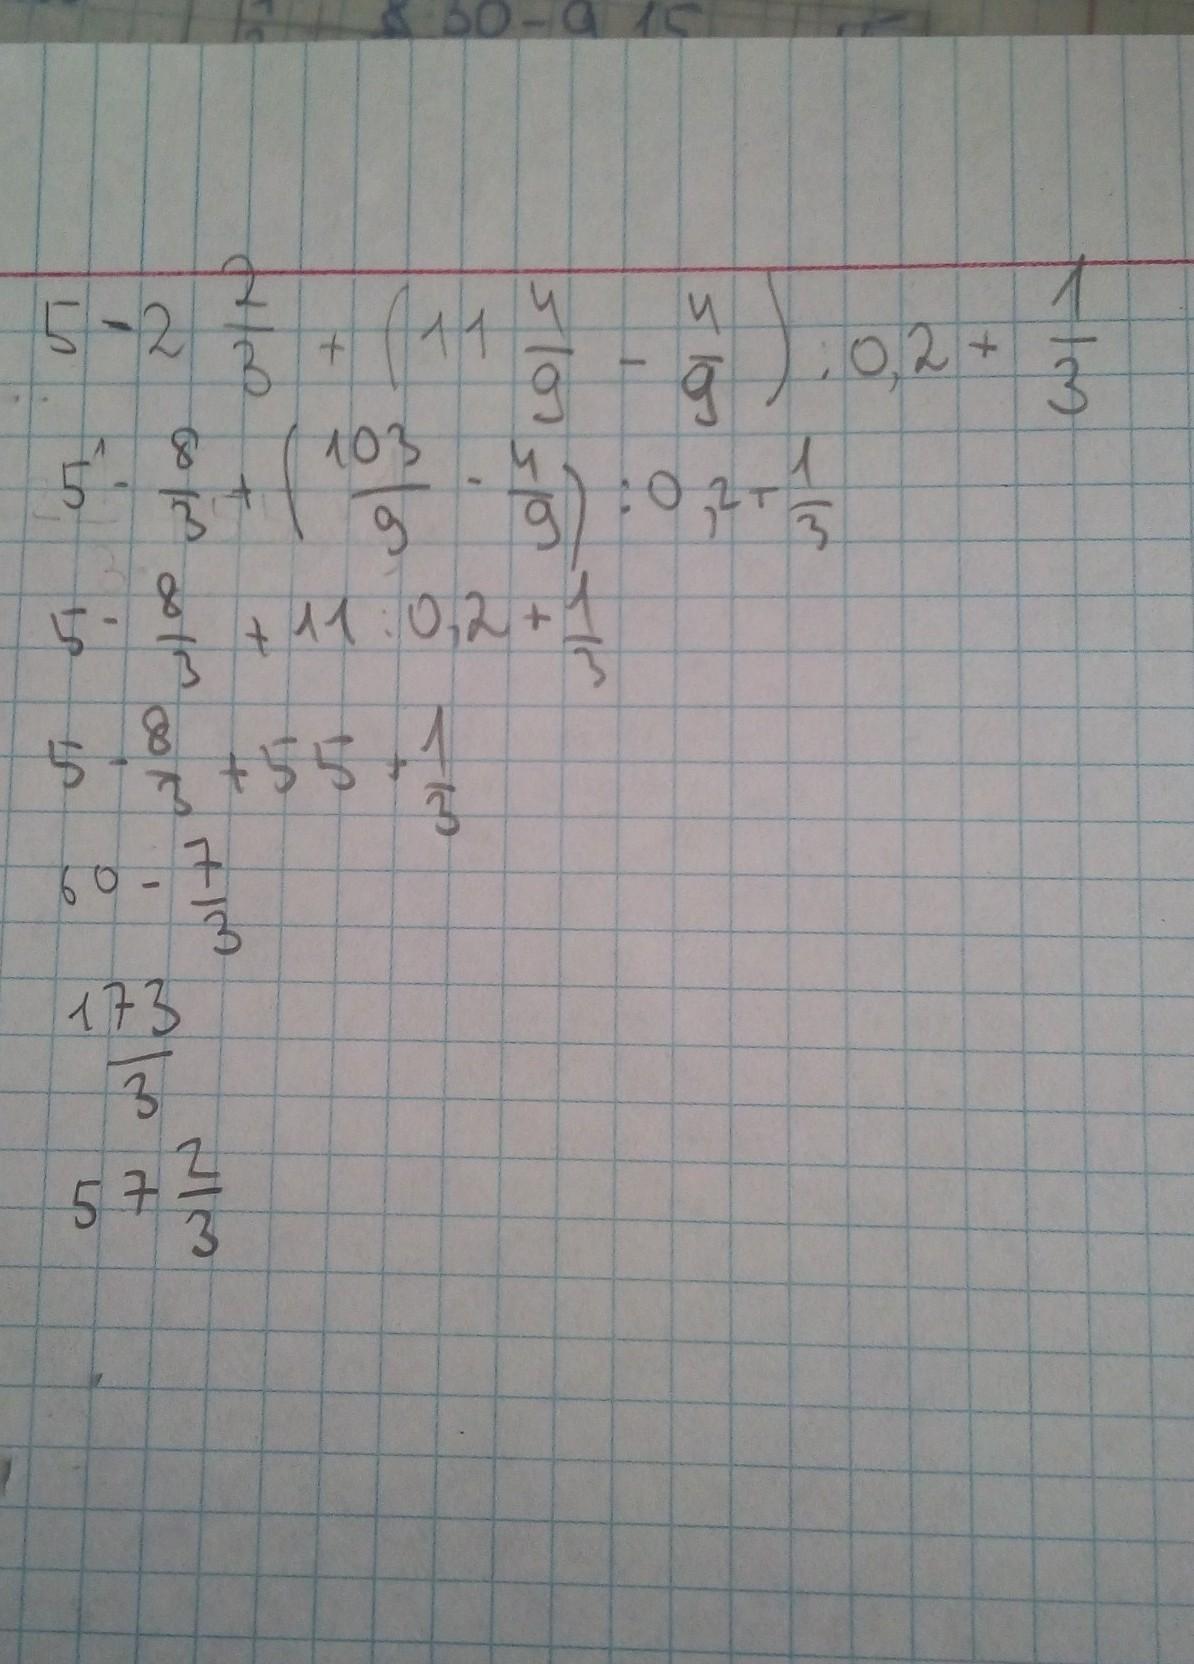 8 30-9 15
5 - 2 2/3 + (11 4/9 - 4/9) : 0,2 + 1/3
5 - 8/3 + (103/9 - 4/9) : 0,2 + 1/3
5 - 8/3 + 11 : 0,2 + 1/3
5 - 8/3 + 55 + 1/3
60 - 7/3
173/3
57 2/3